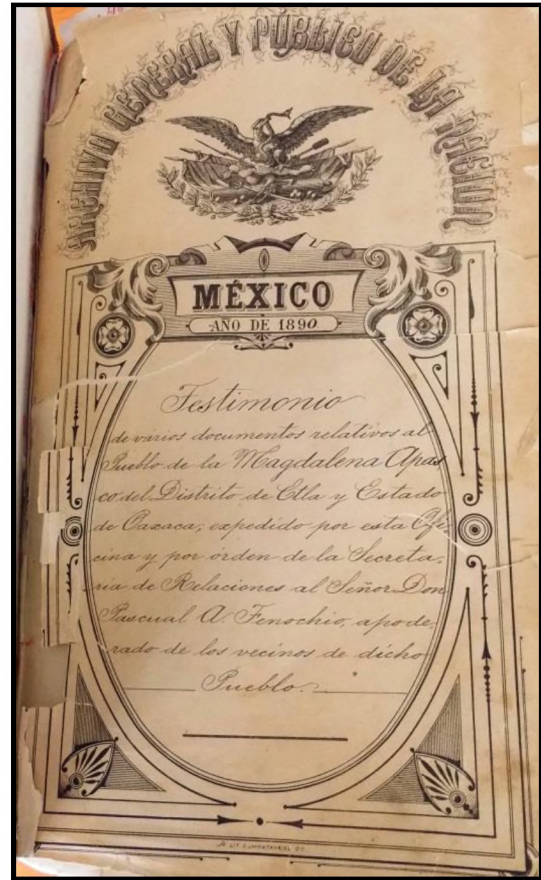 ARCHIVO GENERAL Y PÚBLICO DE LA NACION
MÉXICO
AÑO DE 1890
Testimonio
de varios documentos relativos al
Pueblo de la Magdalena Apas
co del Distrito de Etla y Estado
de Oaxaca, expedido por esta Ofi
cina y por órden de la Secreta,
ria de Relaciones al Señor Don
Pascual A. Fenochio, apode,
rado de los vecinos de dicho
Pueblo.